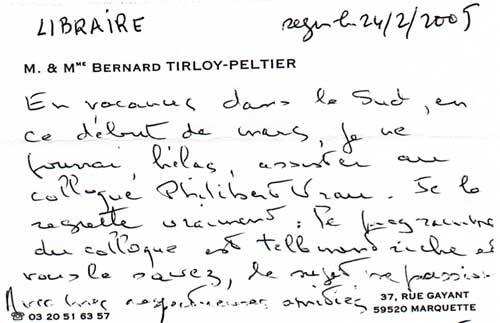 LIBRAIRE
reçu le 24/2/2005
M. & MME BERNARD TIRLOY-PELTIER
En vacances dans le Sud, en
ce début de mars, je ne
pourrai, hélas, assister au
colloque Philibert Vrau. Je le
regrette vraiment : le programme
du colloque est tellement riche et
vous le savez, le sujet me passionne
Avec mes respectueuses amitiés
37, RUE GAYANT
☎ 03 20 51 63 57
59520 MARQUETTE